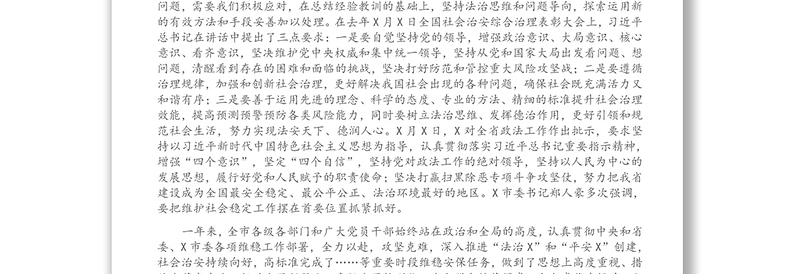 问题，需要我们积极应对，在总结经验教训的基础上，坚持法治思维和问题导向，探索运用新
的有效方法和手段妥善加以处理。在去年 X 月 X 日全国社会治安综合治理表彰大会上，习近平
总书记在讲话中提出了三点要求：一是要自觉坚持党的领导，增强政治意识、大局意识、核心
意识、看齐意识，坚决维护党中央权威和集中统一领导，坚持从党和国家大局出发看问题、想
问题，清醒看到存在的困难和面临的挑战，坚决打好防范和管控重大风险攻坚战；二是要遵循
治理规律，加强和创新社会治理，更好解决我国社会出现的各种问题，确保社会既充满活力又
和谐有序；三是要善于运用先进的理念、科学的态度、专业的方法、精细的标准提升社会治理
效能，提高预测预警预防各类风险能力，同时要树立法治思维、发挥德治作用，更好引领和规
范社会生活，努力实现法安天下、德润人心。X 月 X 日，X 对全省政法工作作出批示，要求坚
持以习近平新时代中国特色社会主义思想为指导，认真贯彻落实习近平总书记重要指示精神，
增强“四个意识”，坚定“四个自信”，坚持党对政法工作的绝对领导，坚持以人民为中心的
发展思想，履行好党和人民赋予的职责使命；坚决打赢扫黑除恶专项斗争攻坚仗，努力把我省
建设成为全国最安全稳定、最公平公正、法治环境最好的地区。X 市委书记郑人豪多次强调，
要把维护社会稳定工作摆在首要位置抓紧抓好。
一年来，全市各级各部门和广大党员干部始终站在政治和全局的高度，认真贯彻中央和省
委、X 市委各项维稳工作部署，全力以赴，攻坚克难，深入推进“法治 X”和“平安 X”创建，
社会治安持续向好，高标准完成了……等重要时段维稳安保任务，做到了思想上高度重视、措